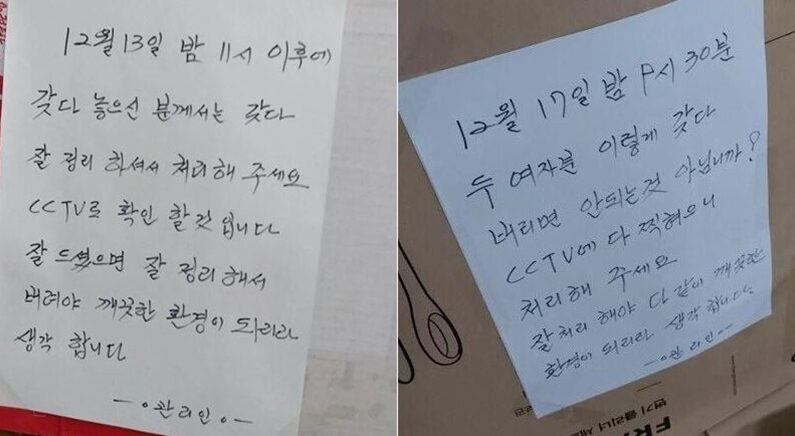 12월 13일 밤 11시 이후에
갖다 놓으신 분께서는 갖다
잘 정리 하셔서 처리해 주세요
CCTV로 확인 할것 입니다
잘 드셨으면 잘 정리해서
버려야 깨끗한 환경이 되리라
생각 합니다
-。관리인。-
12월 17일 밤 9시 30분
두 여자분 이렇게 갖다
버리면 안되는것 아닙니까?
CCTV에 다 찍혔으니
처리해 주세요
잘 처리 해야 다 같이 깨끗한
환경이 되리라 생각 합니다.
-。관리인-
변기 클리너
FR